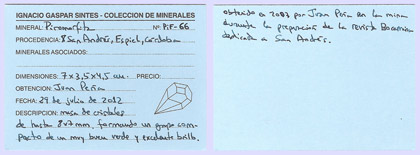 IGNACIO GASPAR SINTES - COLECCION DE MINERALES
MINERAL: Piromorfita Nº: PiF-66
PROCEDENCIA: San Andrés, Espiel, Córdoba
MINERALES ASOCIADOS:
DIMENSIONES: 7x3,5x4,5 cm. PRECIO:
OBTENCION: Juan Peña
FECHA: 29 de julio de 2012
DESCRIPCION: masa de cristales
de hasta 8x7mm, formando un grupo com-
pacto de un muy buen verde y excelente brillo.
obtenido en 2007 por Juan Peña en la mina
durante la preparación de la revista Bocamina
dedicada a San Andrés.